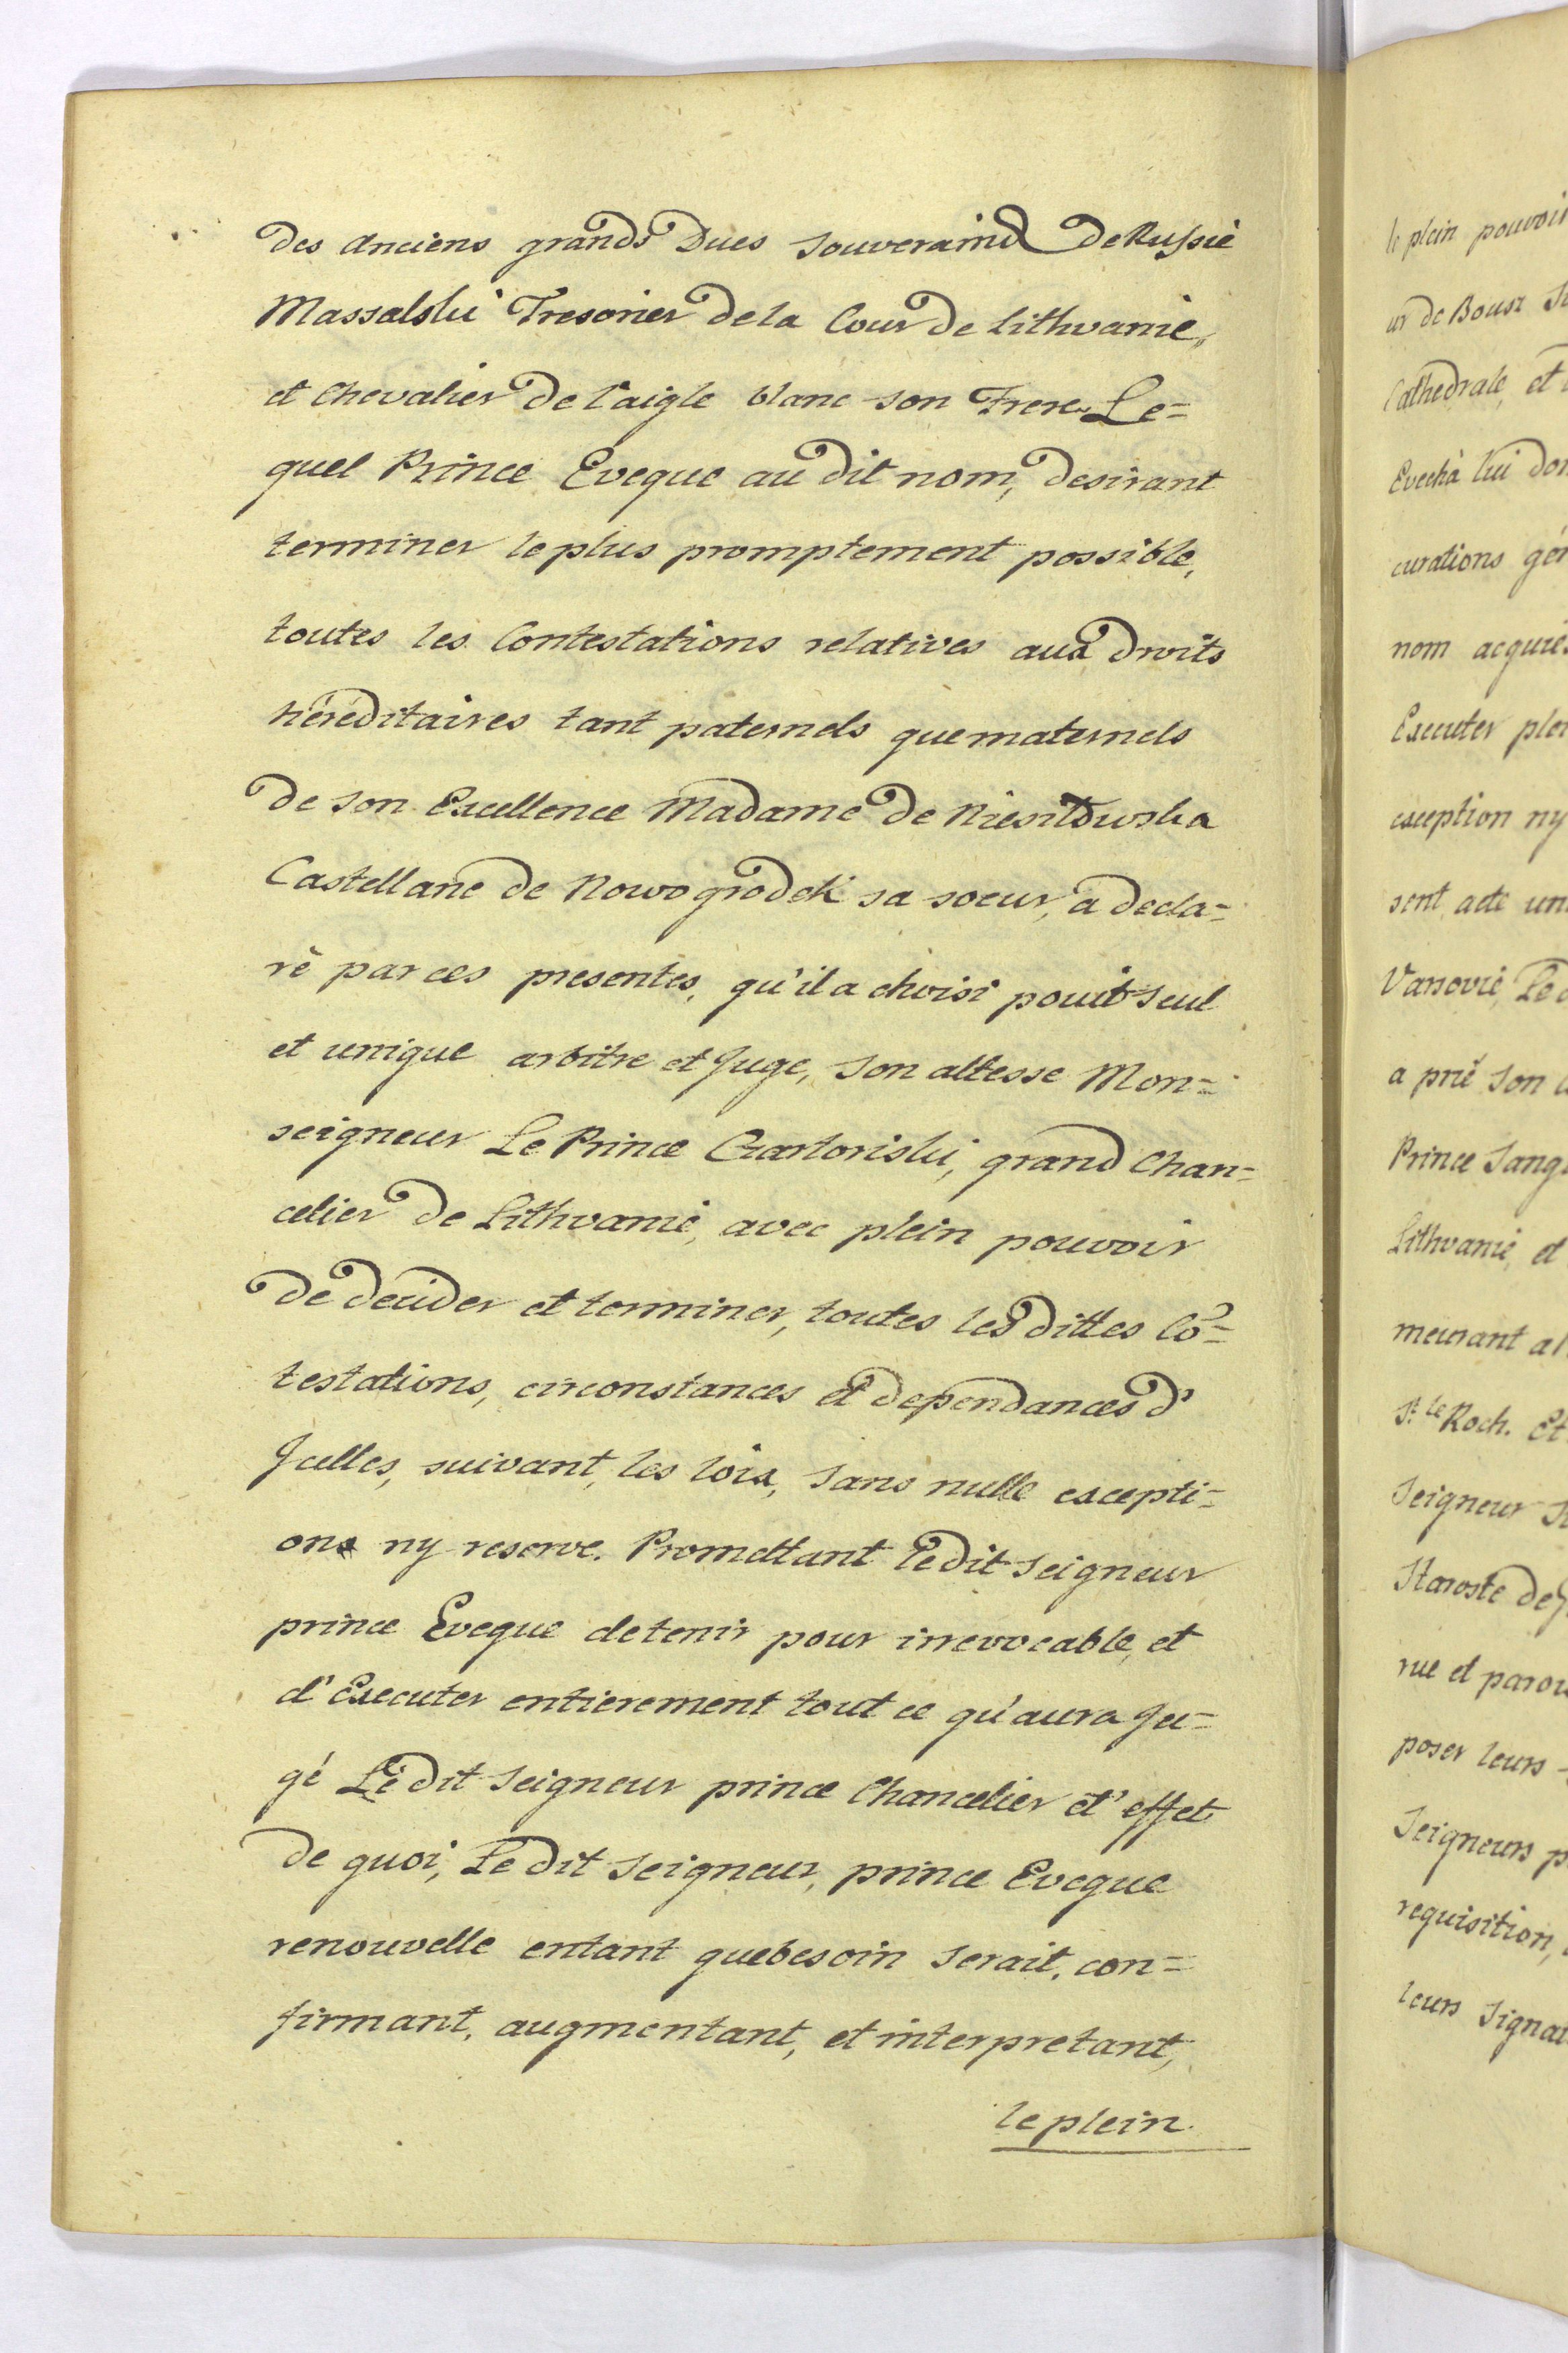 des Anciens grands Ducs Souverains de Russie
Massalski Tresorier de la Cour de Lithvanie,
et Chevalier de l'aigle blanc son Frere Le=
quel Prince Eveque au dit nom, desirant
terminer le plus promptement possible,
toutes les Contestations relatives aux droits
héréditaires tant paternels que maternels
de son Excellence Madame de Niesiłowska
Castellane de Nowogrodek sa soeur, a decla=
ré par ces presentes, qu'il a choisi pour Seul
et unique arbitre et Juge, Son altesse Mon=
seigneur Le Prince Czartoriski, grand Chan=
celier de Lithvanie, avec plein pouvoir
de decider et terminer, toutes les dittes Cõ=
testations, circonstances et dependances d'
Jcelles, suivant, les loix, Sans nulle excepti=
ons ny reserve. Promettant Le dit Seigneur
prince Eveque de tenir pour irrevocable, et
d'Executer entierement tout ce qu'aura Ju=
gé Le dit Seigneur prince Chancelier et' effet
de quoi, Le dit Seigneur, prince Eveque
renouvelle entant que besoin Serait, con=
firmant, augmentant, et interpretant,
le plein
le plein pouvoir
ur de Bousz
Cathedrale, et
Evechà lui
curations
nom
Executer
exception ny
sent acte
Varsovie, Le
a prié Son
Prince
Lithvanie, et
meurant
St. le Roch. Et
Seigneur
Staroste de
rue et
poser leurs
Seigneurs
requisition,
leurs